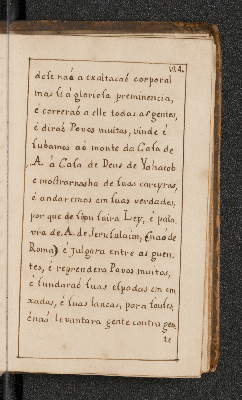 dose naõ a exaltacaõ corporal
mas se á gloriosa preminencia,
é correraõ a elle todas as gentes,
é diraõ Povos muitos, vinde é
subamos aó monte da Casa de
A. à Casa de Deus de Yahacob
e mostrarnosha de suas carreyras,
é andaremos em suas verdades,
por que de sipu saira Ley, é pala
vra de A. de Jerusalaim, (é naõ de
Roma) é julgara entre as guen
tes, é reprendera Povos muitos,
é fundaraõ suas espadas em en
xadas, é suas lancas, para fouses,
é naõ levantara gente contra gen
te